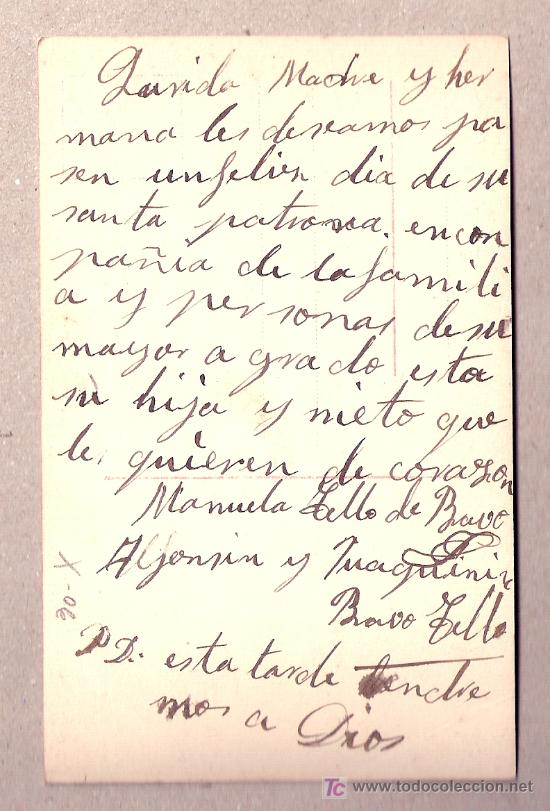 Qurida Madre y her
mana les deseamos pa
sen un felien dia de su
santa patrona. en con
pañia de la famili
a y personas de su
mayor a grado esta
su hija y nieto que
les quieren de corazon
Manuela Tello de Bravo
Alfonsin y Juaquinin
Bravo Tello
PD: esta tarde tendre
mos a Dios
90-X
TC www.todocoleccion.net